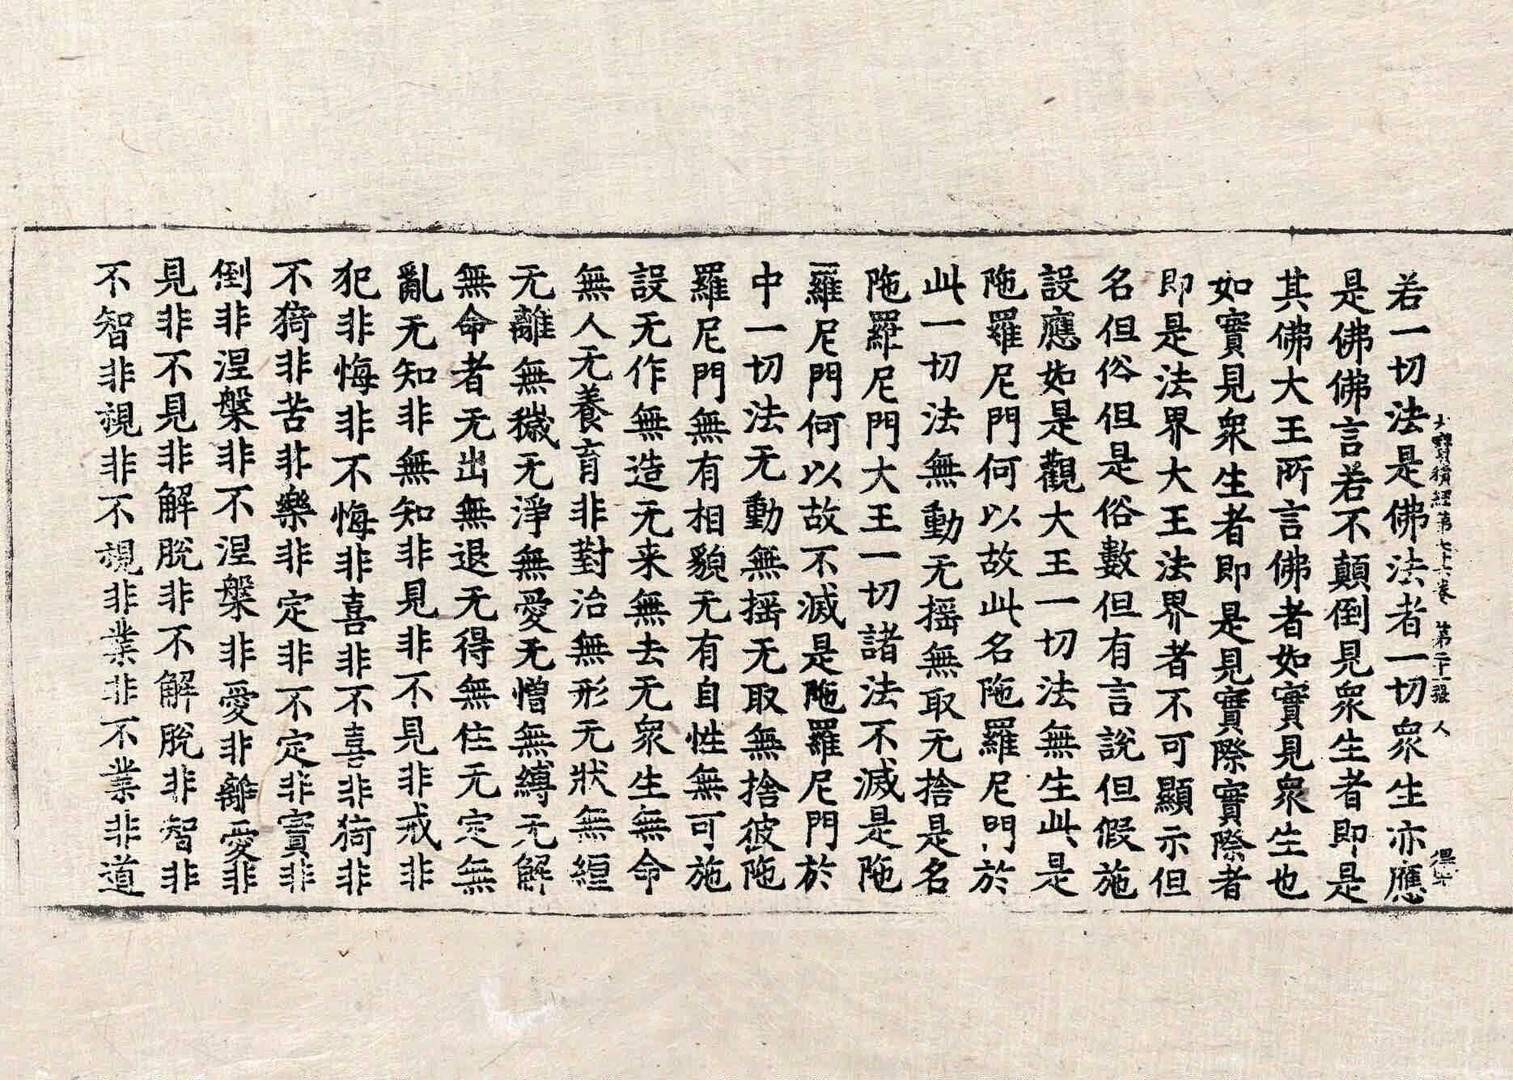 大寶積經第七十六卷 第二十一張 人
若一切法是佛法者一切衆生亦應
是佛佛言若不顛倒見衆生者即是
其佛大王所言佛者如實見衆生也
如實見衆生者即是見實際實際者
即是法界大王法界者不可顯示但
名但俗但是俗數但有言說但假施
設應如是觀大王一切法無生此是
陁羅尼門何以故此名陁羅尼門於
此一切法無動无揺無取无捨是名
陁羅尼門大王一切諸法不滅是陁
羅尼門何以故不滅是陁羅尼門於
中一切法无動無揺无取無捨彼陁
羅尼門無有相貌无有自性無可施
設无作無造无来無去无衆生無命
無人无養育非對治無形无狀無纏
无離無穢无淨無愛无憎無縛无解
無命者无出無退无得無住无定無
亂无知非無知非見非不見非戒非
犯非悔非不悔非喜非不喜非猗非
不猗非苦非樂非定非不定非實非
倒非涅槃非不涅槃非愛非離愛非
見非不見非解脫非不解脫非智非
不智非視非不視非業非不業非道